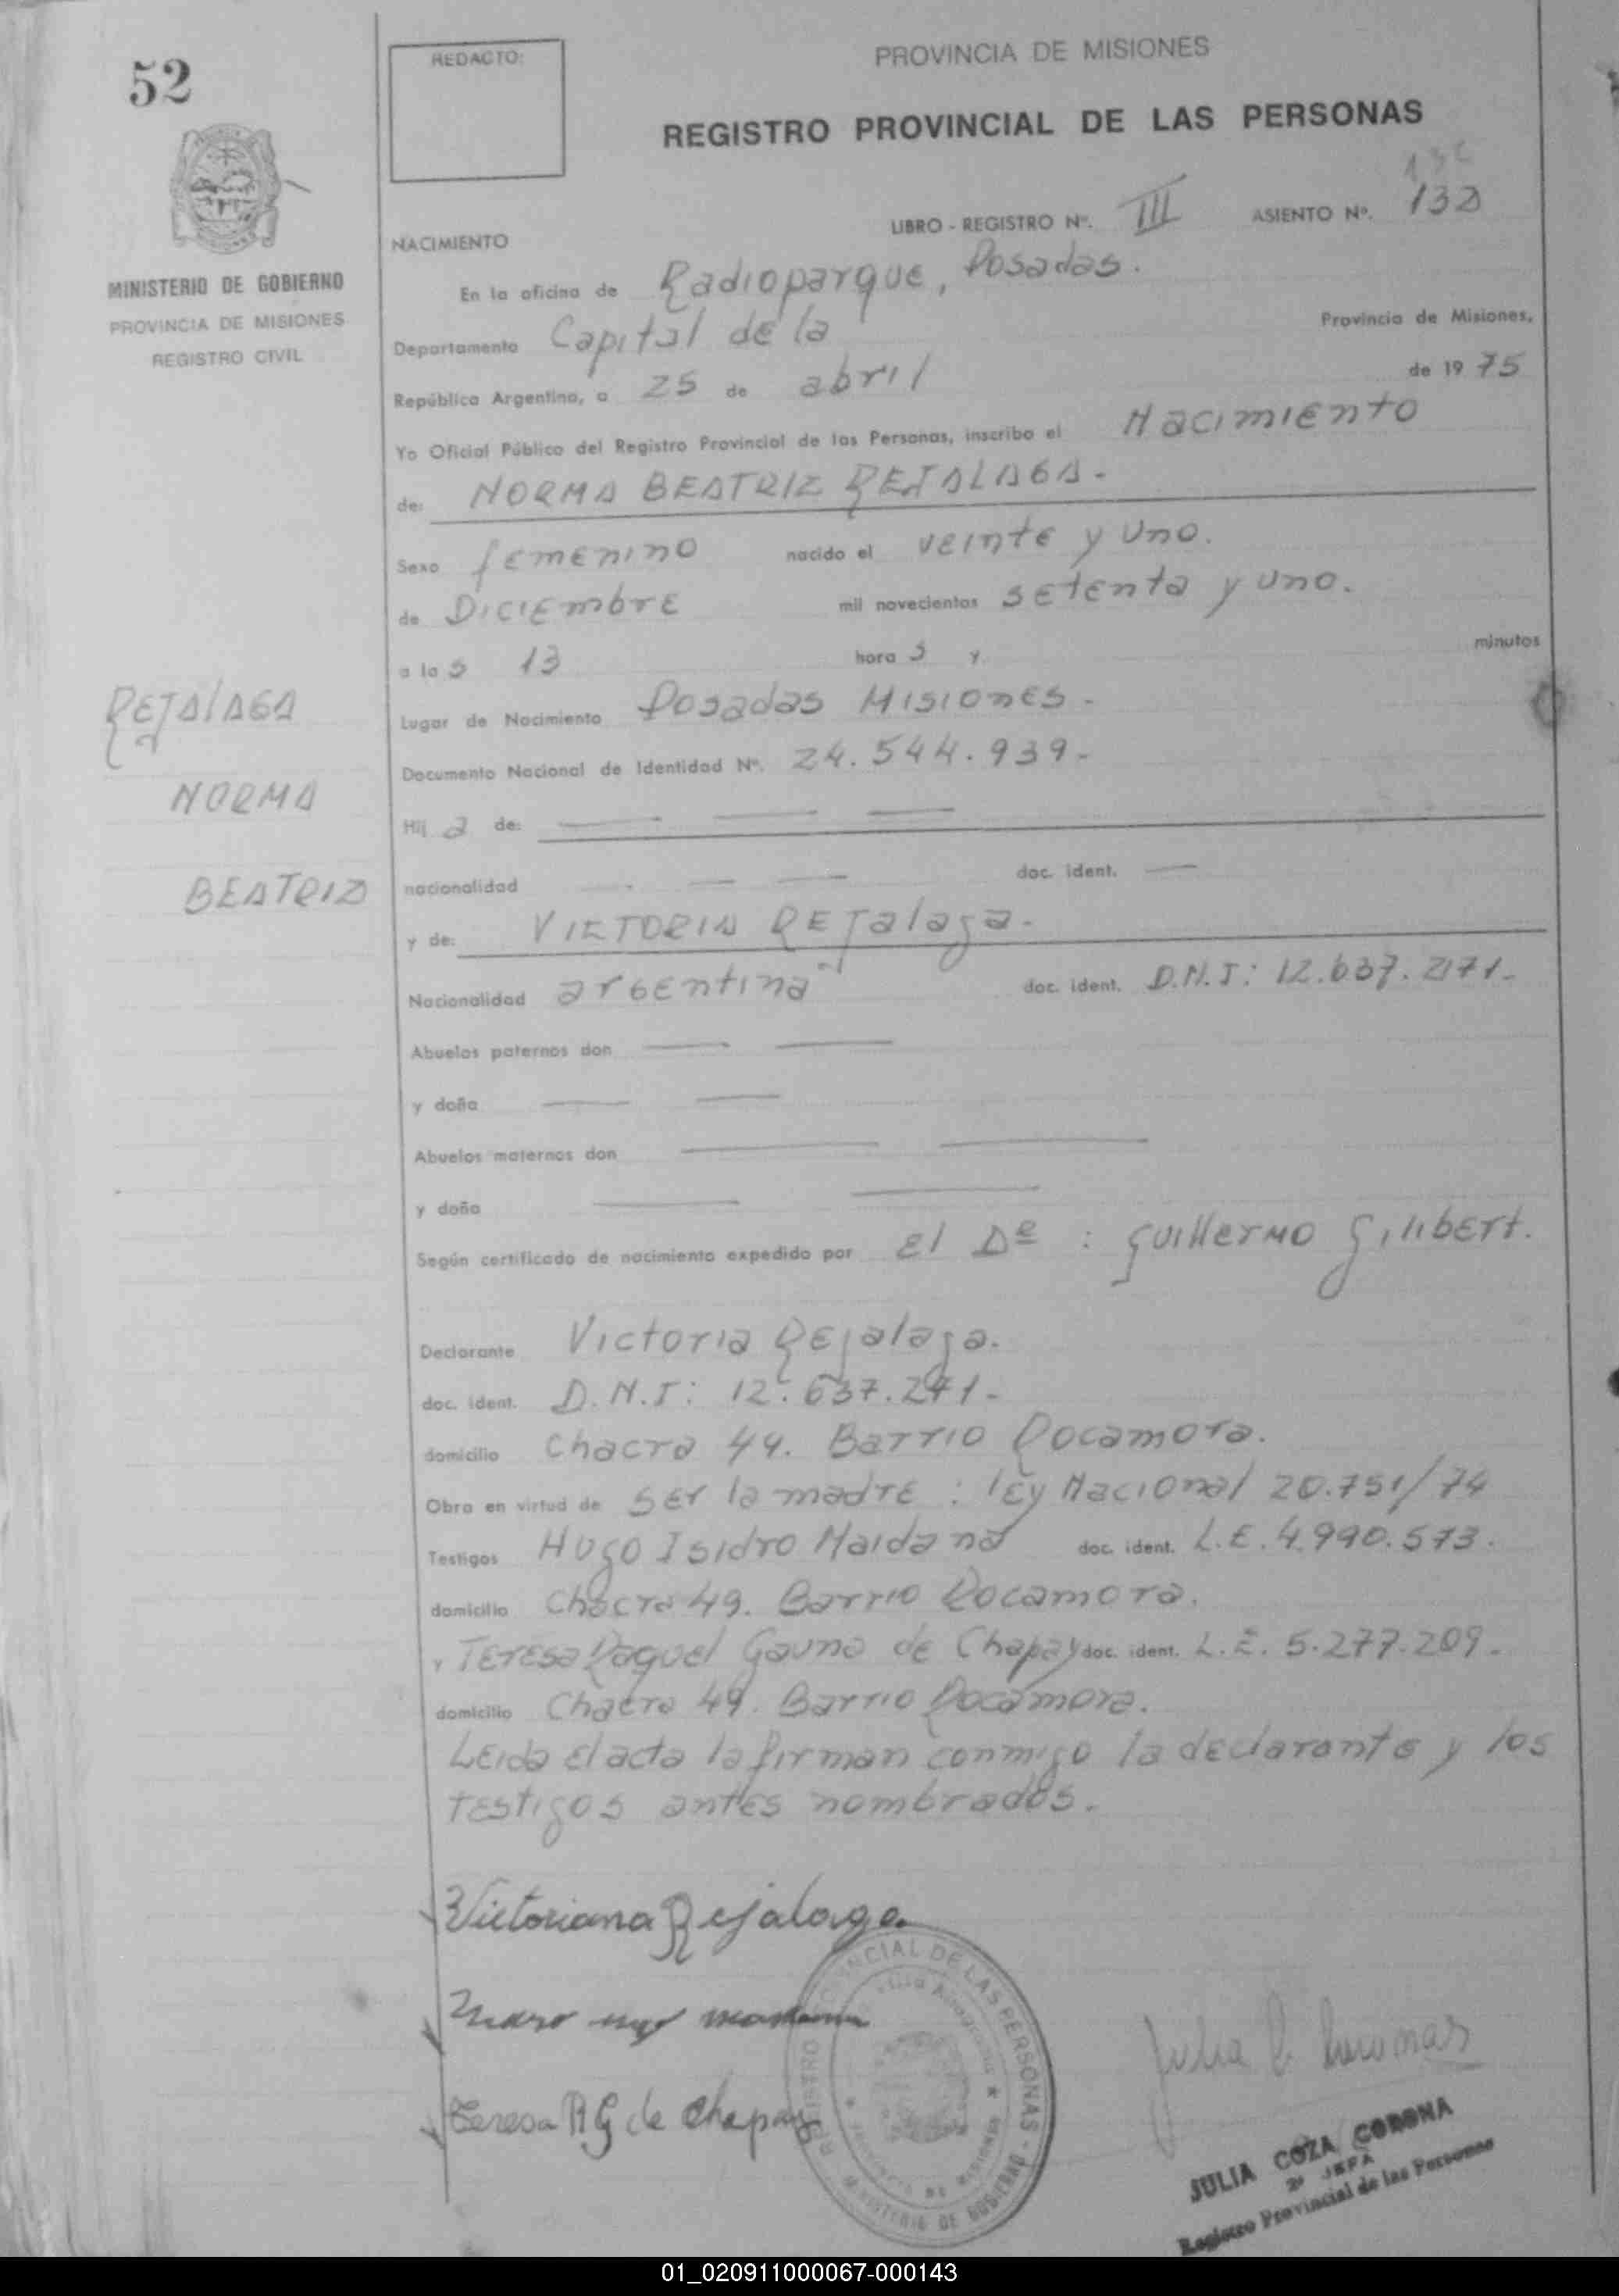 52
REDACTO:
PROVINCIA DE MISIONES
REGISTRO PROVINCIAL DE LAS PERSONAS
LIBRO - REGISTRO Nº. III ASIENTO Nº. 132
NACIMIENTO
MINISTERIO DE GOBIERNO
PROVINCIA DE MISIONES
REGISTRO CIVIL
En la oficina de Radioparque, Posadas.
Departamento Capital de la Provincia de Misiones,
República Argentina, a 25 de abril de 19 75
Yo Oficial Público del Registro Provincial de las Personas, inscribo el Nacimiento
de: NORMA BEATRIZ REJALAGA.
Sexo femenino nacido el veinte y uno.
de Diciembre mil novecientos setenta y uno.
a la s 13 hora s y minutos
REJALAGA
NORMA
BEATRIZ
Lugar de Nacimiento Posadas Misiones -
Documento Nacional de Identidad Nº. 24.544.939-
Hij a de:
nacionalidad doc. ident.
y de: VICTORIA REJalaga.
Nacionalidad argentina doc. ident. D.N.I: 12.637.271-
Abuelos paternos don
y doña
Abuelos maternos don
y doña
Según certificado de nacimiento expedido por el Dr : Guillermo Gilibert.
Declarante Victoria Rejalaga.
doc. ident. D.N.I: 12.637.271-
domicilio Chacra 49. Barrio Rocamora.
Obra en virtud de ser la madre : ley Nacional 20.751/74
Testigos Hugo Isidro Maidana doc. ident. L.E. 4.990.573.
domicilio Chacra 49. Barrio Rocamora.
y Teresa Raquel Gauna de Chapay doc. ident. L.E. 5.277.209-
domicilio Chacra 49. Barrio Rocamora.
Leida el acta la firman conmigo la declarante y los
testigos antes nombrados.
Victoriana Rejalaga
Teresa R G de Chapay
REGISTRO PROVINCIAL DE LAS PERSONAS - MINISTERIO DE GOBIERNO
JULIA COZA CORONA
2º JEFA
Registro Provincial de las Personas
01_020911000067-000143